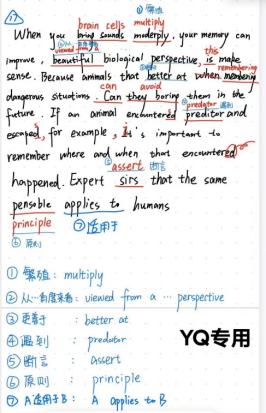 ⑰
① 繁殖
brain cells multiply
When you bring sounds moderply, your memory can
②从…角度来看
viewed from a
this
improve, beautiful biological perspective, is make
③更善于 remembering
sense. Because animals that better at when membering
can avoid
dangerous situations. Can they boring them in the
④predator 遇到
future. If an animal encountered preditor and
escaped, for example, It's important to
remember where and when that encountered
⑤assert 断言
happened. Expert sirs that the same
pensoble applies to humans
principle ⑦适用于
⑥ 原则
① 繁殖: multiply
② 从…角度来看: viewed from a … perspective
③ 更善于 : better at
④ 遇到 : predator
⑤ 断言 : assert
⑥ 原则 : principle
⑦ A适用于B: A applies to B
YQ专用